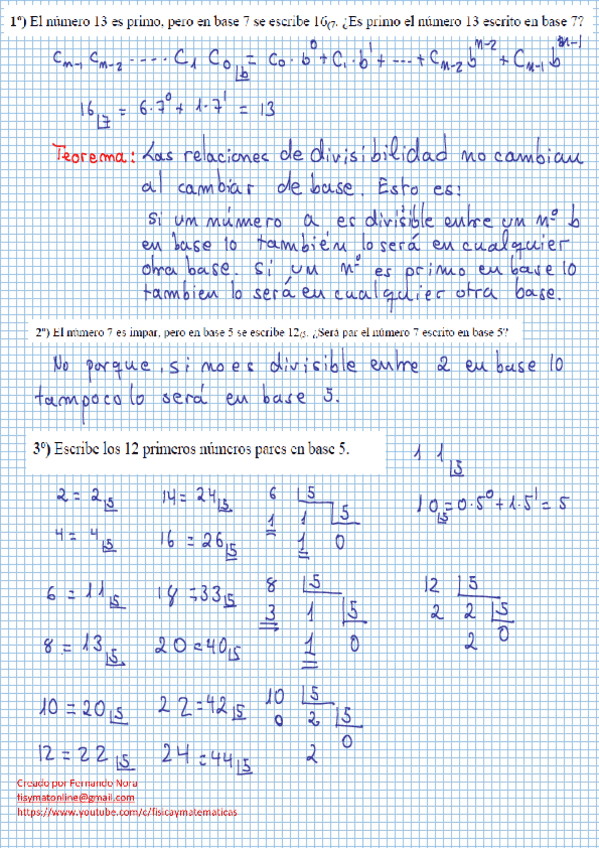 1º) El número 13 es primo, pero en base 7 se escribe 16₍₇. ¿Es primo el número 13 escrito en base 7?
Cₙ₋₁ Cₙ₋₂ ····· C₁ C₀ |b = C₀·b⁰ + C₁·b¹ + ··· + Cₙ₋₂ bⁿ⁻² + Cₙ₋₁ bⁿ⁻¹
16|7 = 6·7⁰ + 1·7¹ = 13
Teorema: Las relaciones de divisibilidad no cambian
al cambiar de base. Esto es:
si un número a es divisible entre un nº b
en base 10 también lo será en cualquier
otra base. Si un nº es primo en base 10
tambien lo será en cualquier otra base.
2º) El número 7 es impar, pero en base 5 se escribe 12₍₅. ¿Será par el número 7 escrito en base 5?
No porque si no es divisible entre 2 en base 10
tampoco lo será en base 5.
3º) Escribe los 12 primeros números pares en base 5.
1 1|5
10|5 = 0·5⁰ + 1·5¹ = 5
2 = 2|5 14 = 24|5 6 |5
1 1 |5
4 = 4|5 16 = 26|5 1 0
6 = 11|5 18 = 33|5 8 |5 12 |5
3 1 |5 2 2 |5
8 = 13|5 20 = 40|5 1 0 2 0
10 = 20|5 22 = 42|5 10 |5
0 2 |5
12 = 22|5 24 = 44|5 2 0
Creado por Fernando Nora
fisymatonline@gmail.com
https://www.youtube.com/c/fisicaymatematicas